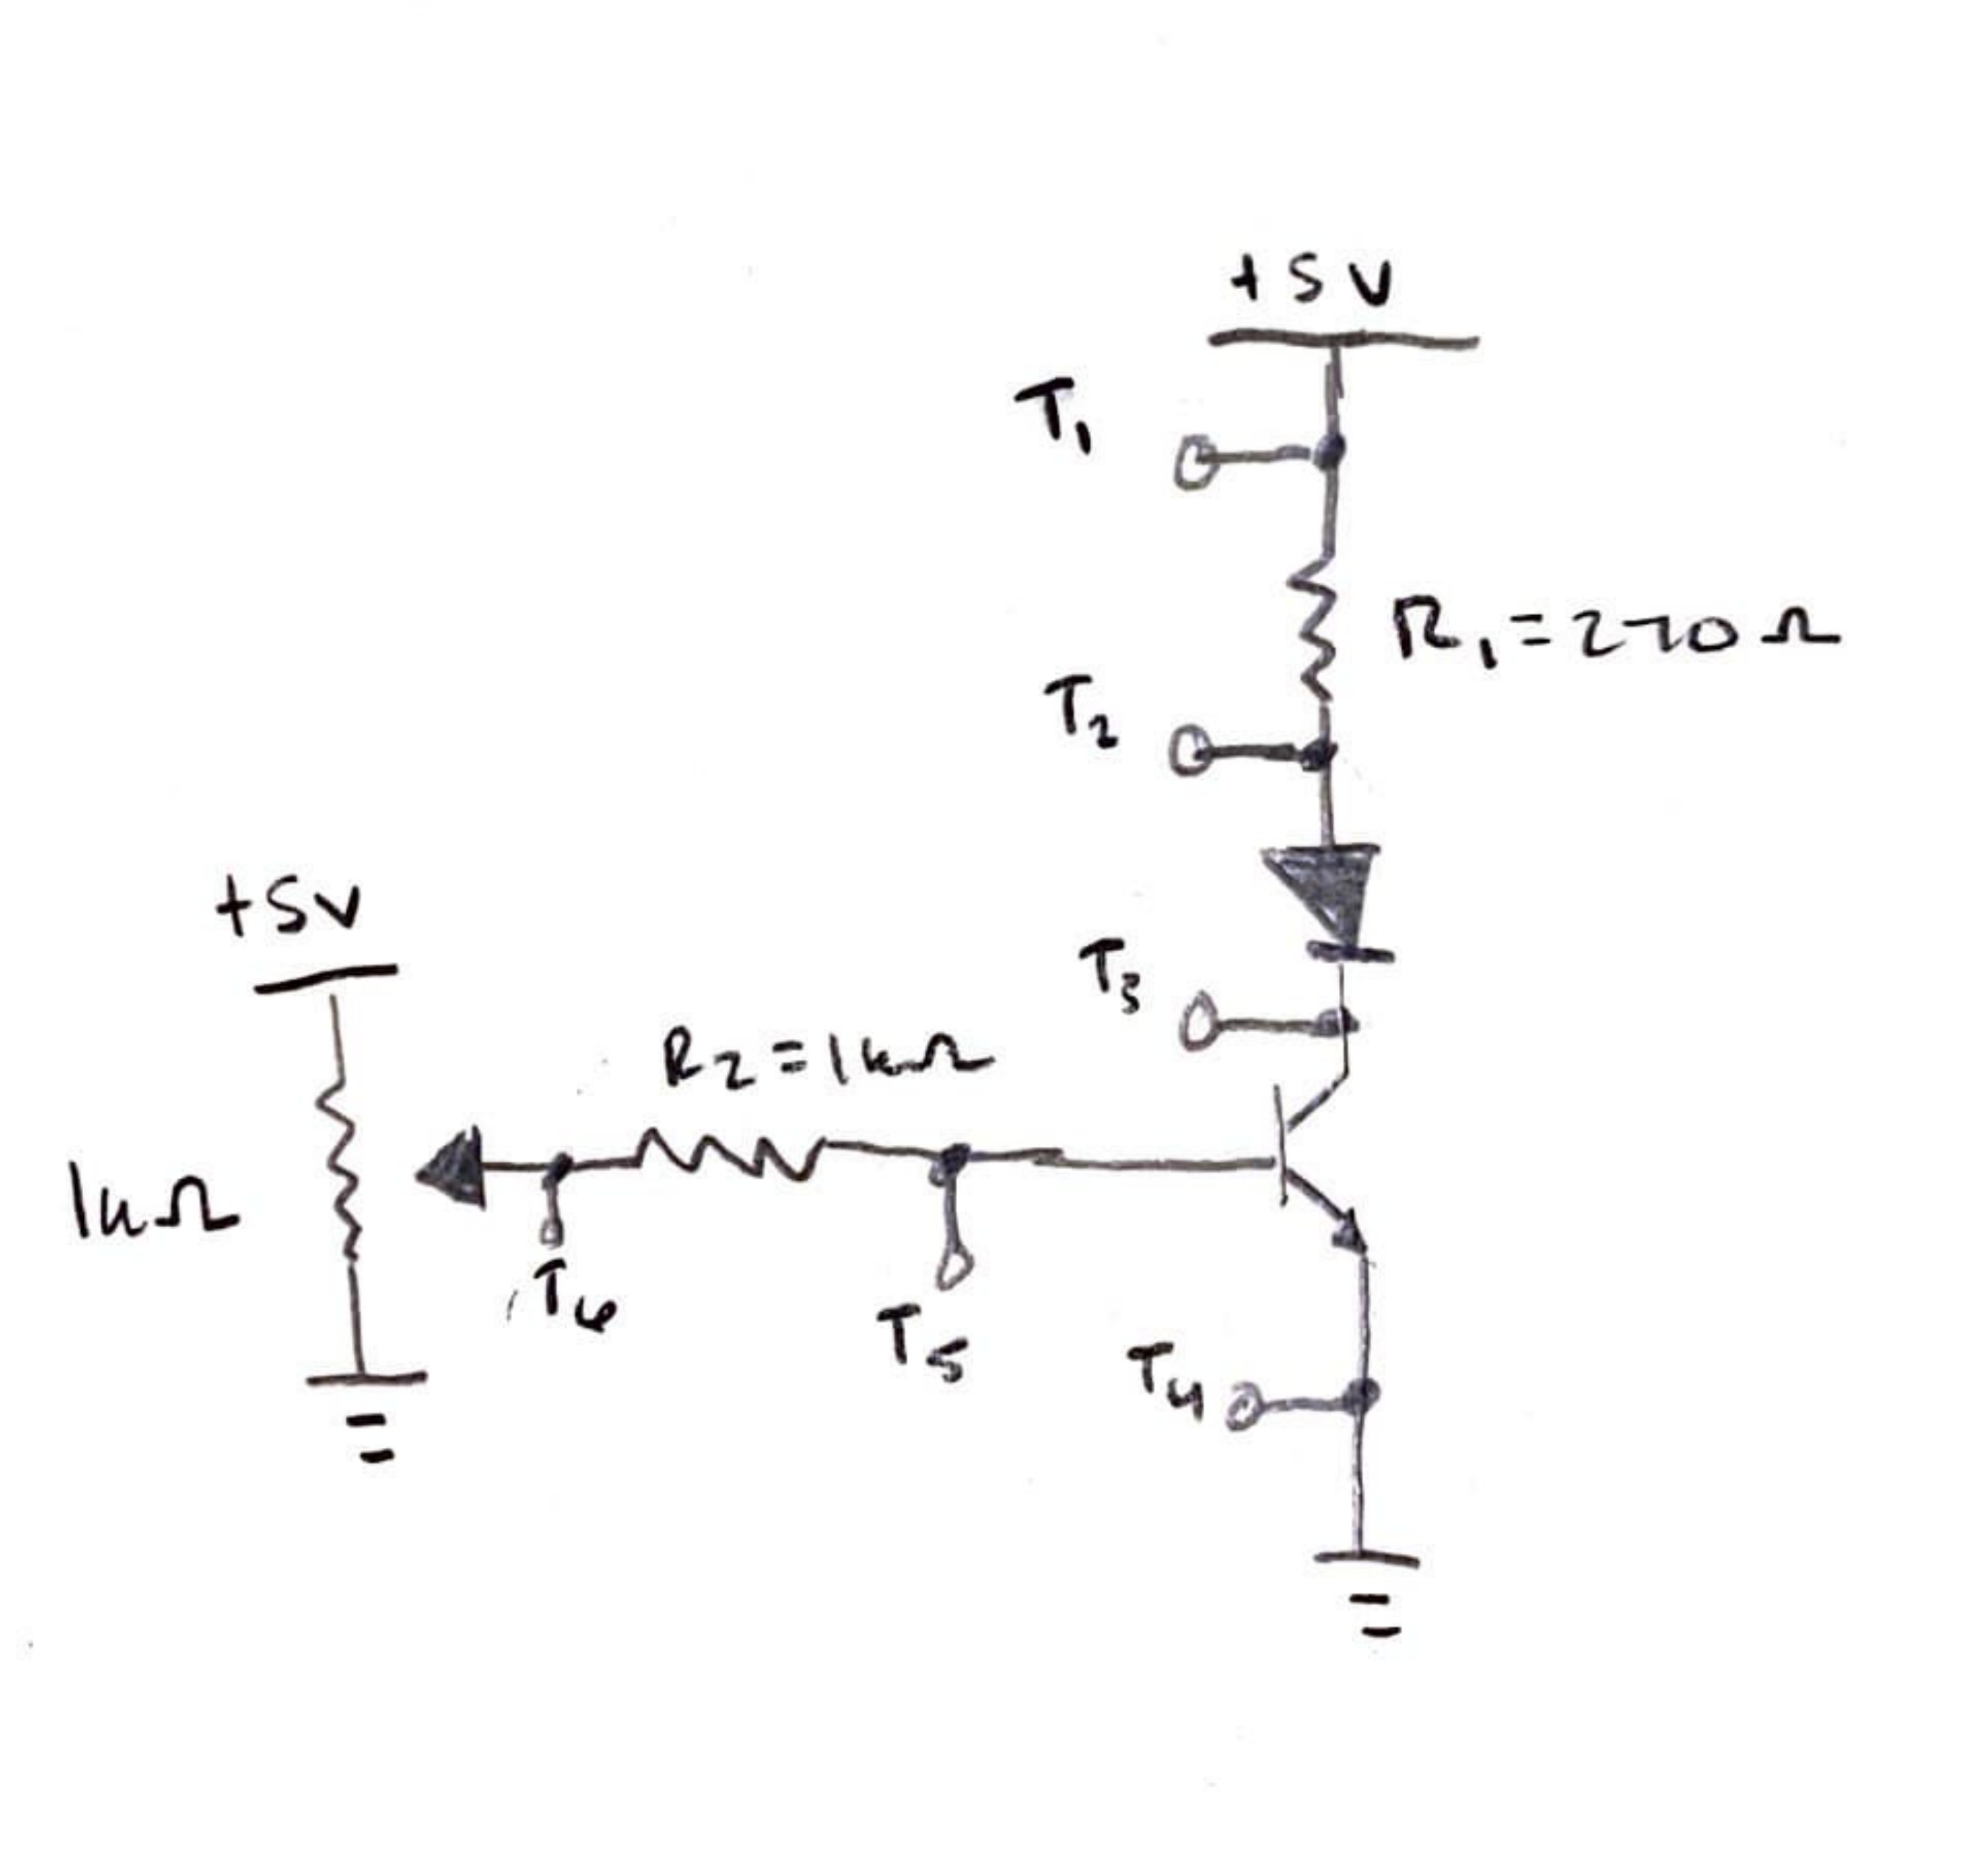 +5V
T1
R1=270Ω
T2
+5V
T3
R2=1kΩ
1kΩ
T6
T5
T4